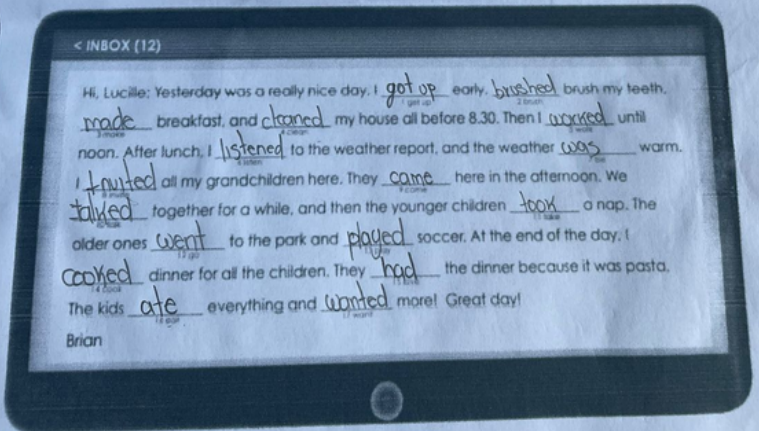 < INBOX (12)
Hi, Lucille: Yesterday was a really nice day. I got up early. brushed brush my teeth.
1 get up 2 brush
made breakfast, and cleaned my house all before 8.30. Then I worked until
3 make 4 clean 5 work
noon. After lunch, I listened to the weather report, and the weather was warm.
6 listen be
I invited all my grandchildren here. They came here in the afternoon. We
8 invite 9 come
talked together for a while, and then the younger children took a nap. The
10 talk 11 take
older ones went to the park and played soccer. At the end of the day, I
12 go 13 play
cooked dinner for all the children. They had the dinner because it was pasta.
14 cook
The kids ate everything and wanted more! Great day!
16 eat 17 want
Brian